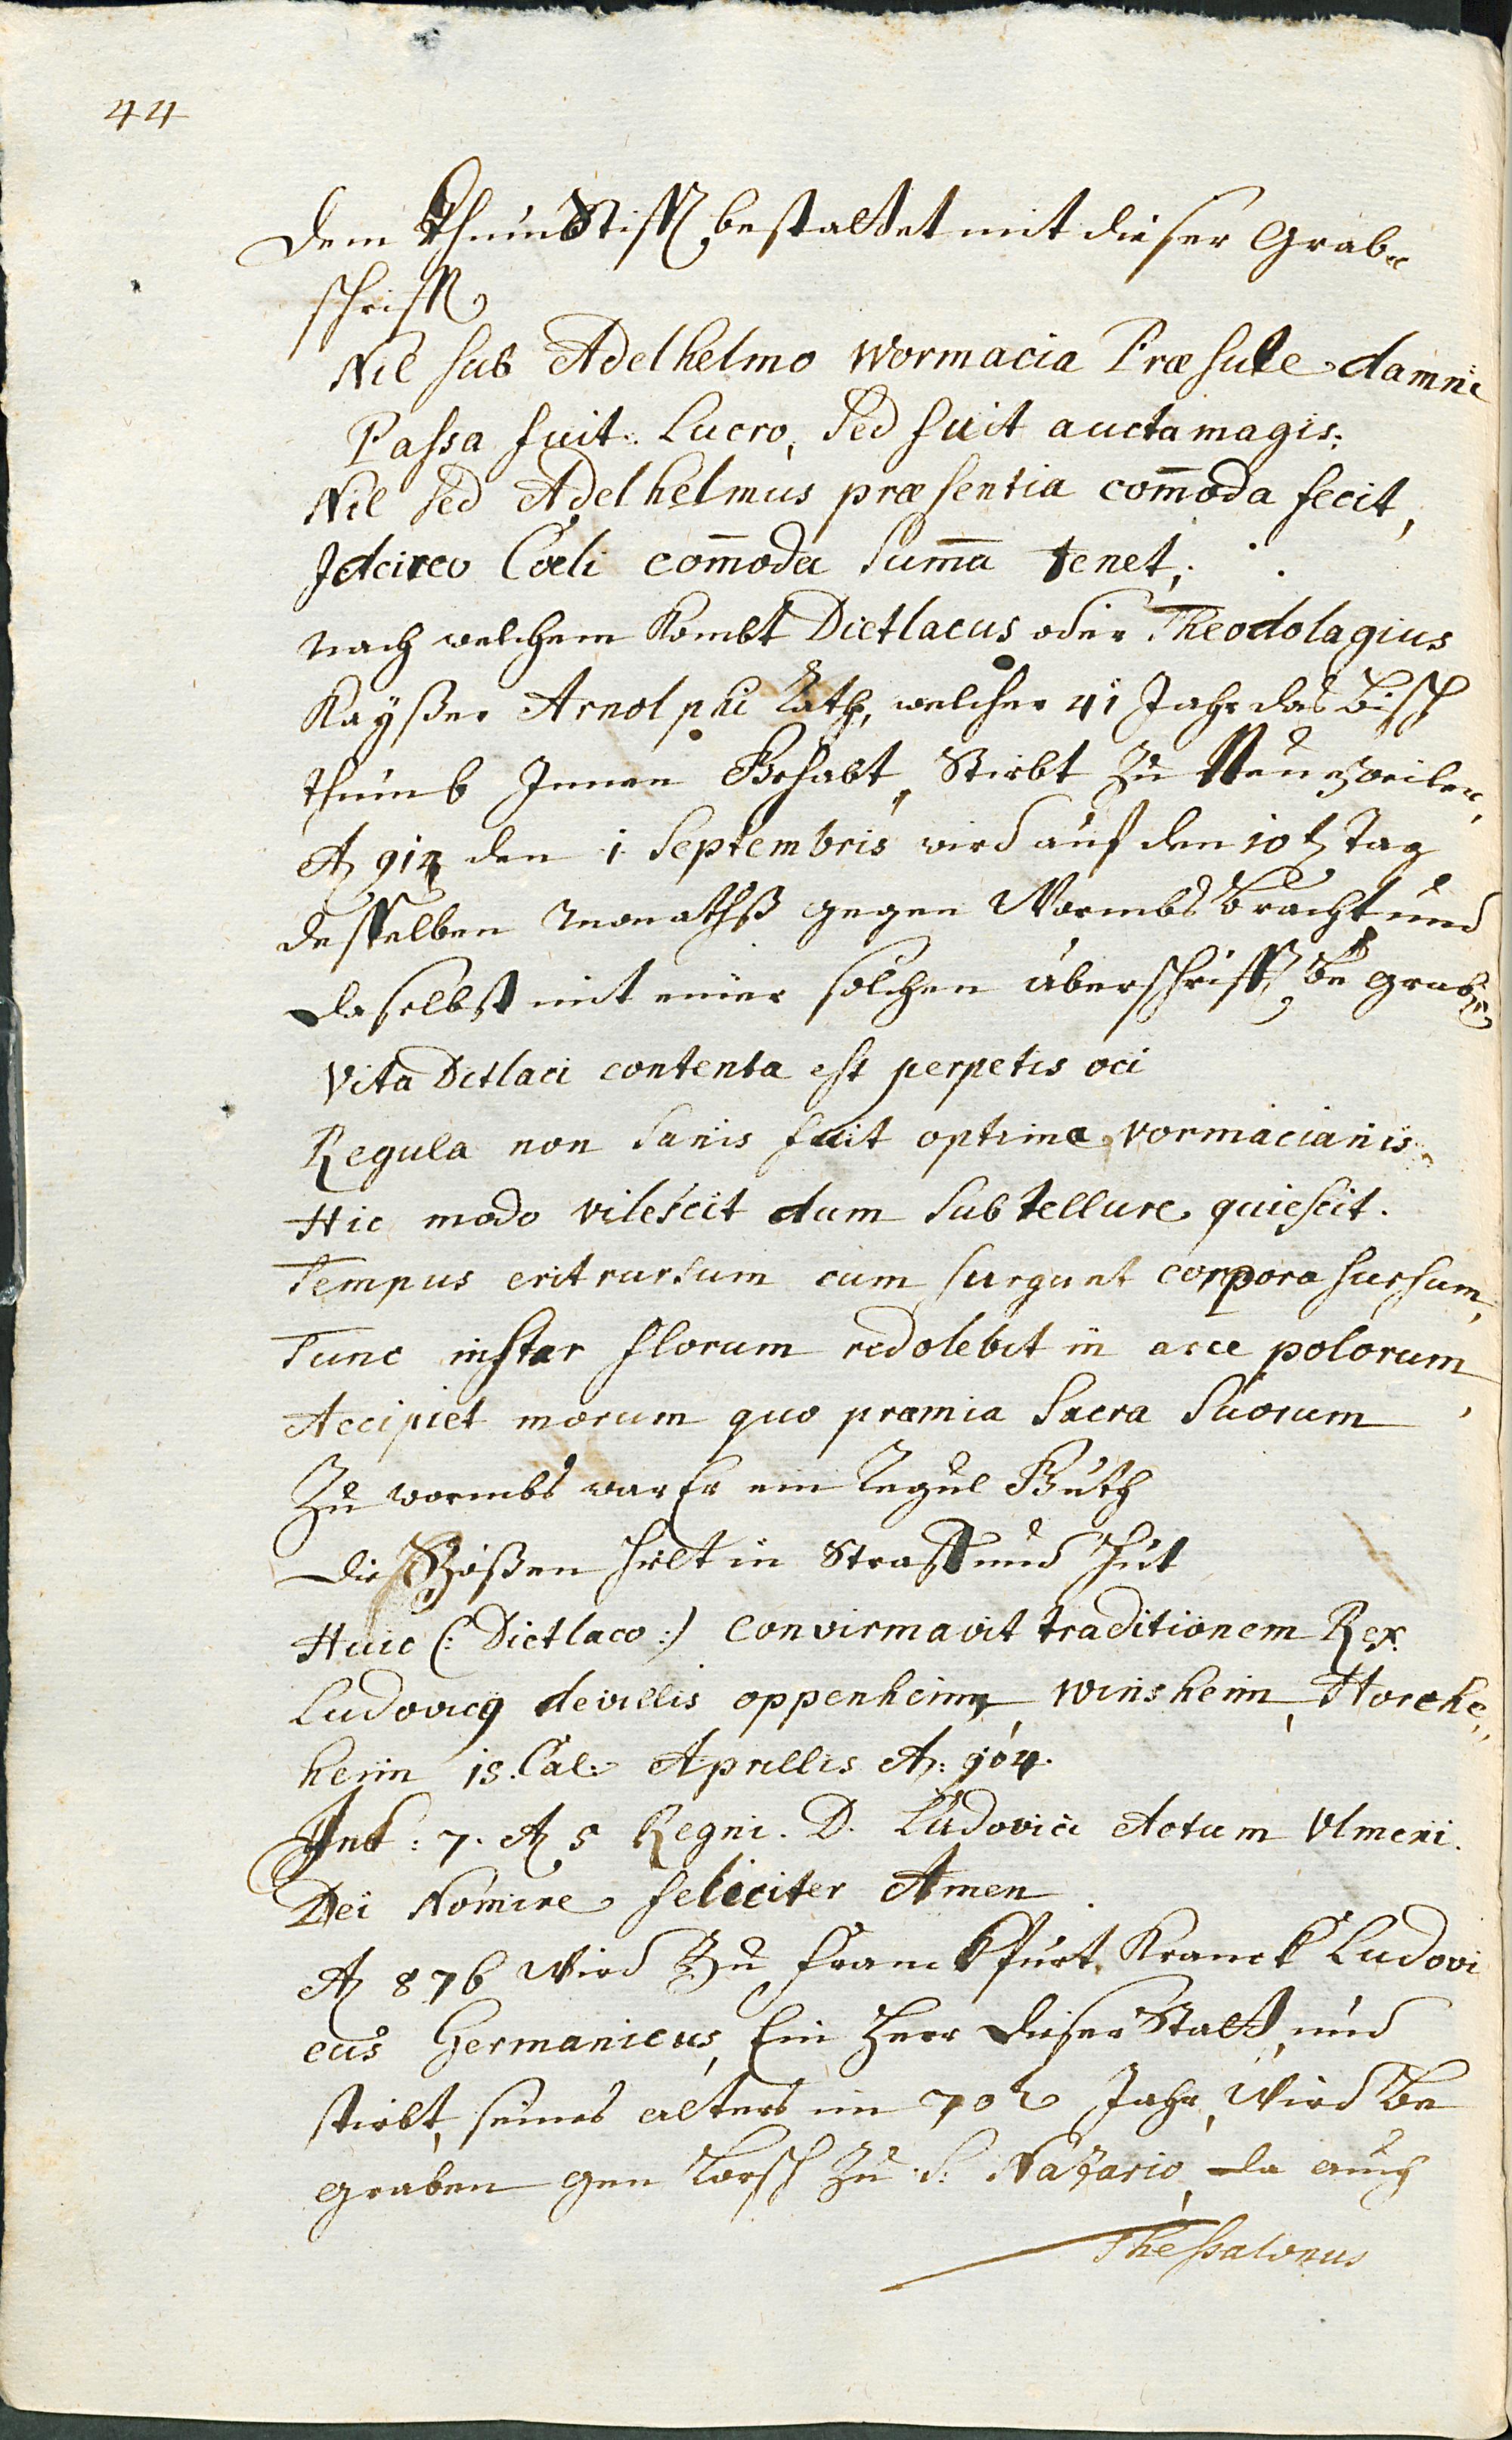 44
dem ThumbStifft bestattet mit dieser Grab„
schrifft
Nil sub Adelhelmo Wormacia Præsule damni
Passa fuit. Lucro, sed fuit aucta magis.
Nil sed Adelhelmus præsentia com̄oda fecit,
Idcirco Cœli com̄oda sum̄a tenet,
nach welchem kombt Dietlacus oder Theodolagius
Kayßer Arnolphi Rath, welcher 41 Jahr das Bisch
thumb Innen Gehabt, Stirbt zu Neuezweiler,
Aõ 914 den 1 Septembris wird auf den 10t Tag
desselben Monathß gegen Wormbs bracht und
daselbst mit einer solchen überschrifft begraben
Vita Ditlaci contenta est perpetis oci
Regula non sanis fuit optima vormacianis.
Hic modo vilescit dum sub tellure quiescit.
Tempus erit rursum cum surgunt corpora sursum,
Tunc instar florum redolebit in arce polorum
Accipiet morum quo præmia sacra suorum
Zu wormbs war Er ein Regul Guth
die Bößen hielt in Straff und Hut
Huic (: Dietlaco :) convirmavit traditionem Rex
Ludovicq de villis oppenheim, winsheim, Horche„
heim 15. Cal: Aprillis A: 904.
Ind: 7. Aõ 5 Regni. D. Ludovici Actum Ulmeni.
Dei Nomine feliciter Amen
Aõ 876 wird Zu Franckfurt Kranck Ludovi
cus Germanicus, Ein Herr dieser Statt, und
stirbt, seines alters im 70t Jahr, wird be
graben gen Lorsch zu S: Nazario, da auch
Thessalonus